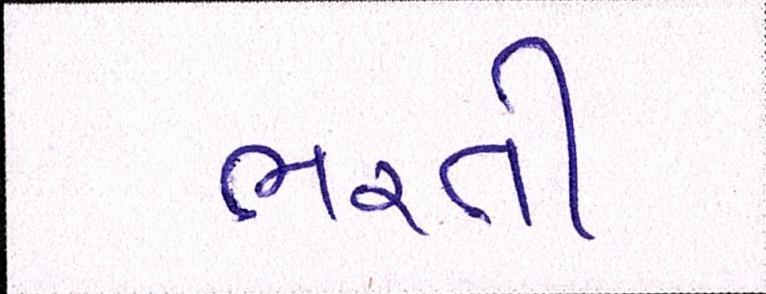 ભરતી